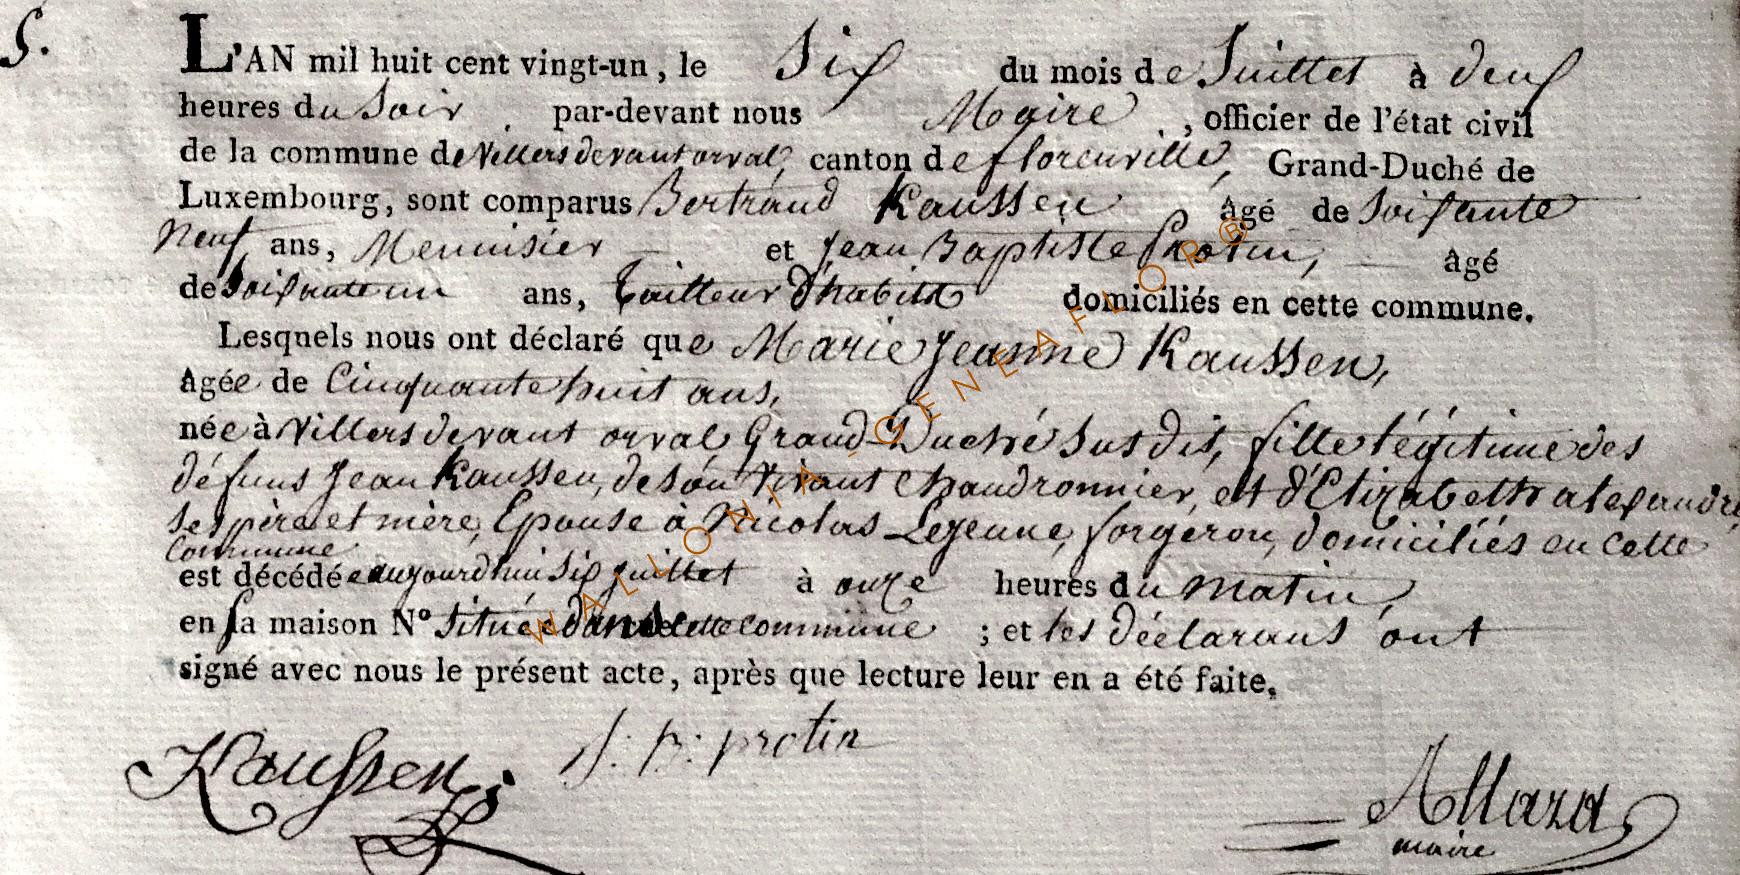 5.
L'AN mil huit cent vingt-un, le Six du mois de Juillet à deux
heures du Soir. par-devant nous Maire, officier de l'état civil
de la commune de Villers devant orval, canton de florenville, Grand-Duché de
Luxembourg, sont comparus Bertrand Kaussen âgé de Soixante
Neuf ans, Menuisier et Jean Baptiste Protin, âgé
de Soixante un ans, Tailleur d'habits domiciliés en cette commune.
Lesquels nous ont déclaré que Marie Jeanne Kaussen,
âgée de Cinquante huit ans,
née à Villers devant orval, Grand-Duché Susdit, fille légitime des
défuns Jean Kaussen, de Son Vivant Chaudronnier, et d'Elizabeth alexandre
Ses père et mère, Epouse à Nicolas Lejeune, forgeron, domiciliés en cette
Commune
est décédée aujourd'hui Six juillet à onze heures du matin,
en sa maison N° Située dans cette commune ; et les déclarans ont
signé avec nous le présent acte, après que lecture leur en a été faite.
Kaussen J: B: protin
maire
WALLONIA-GENEAFLOR®